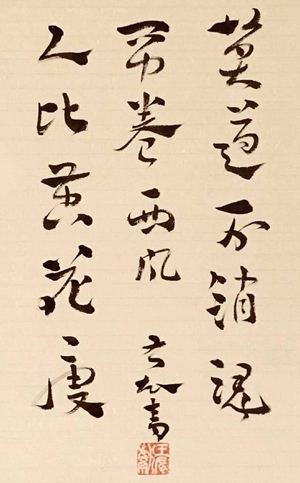 莫道不消魂
帘卷西风
人比黄花瘦